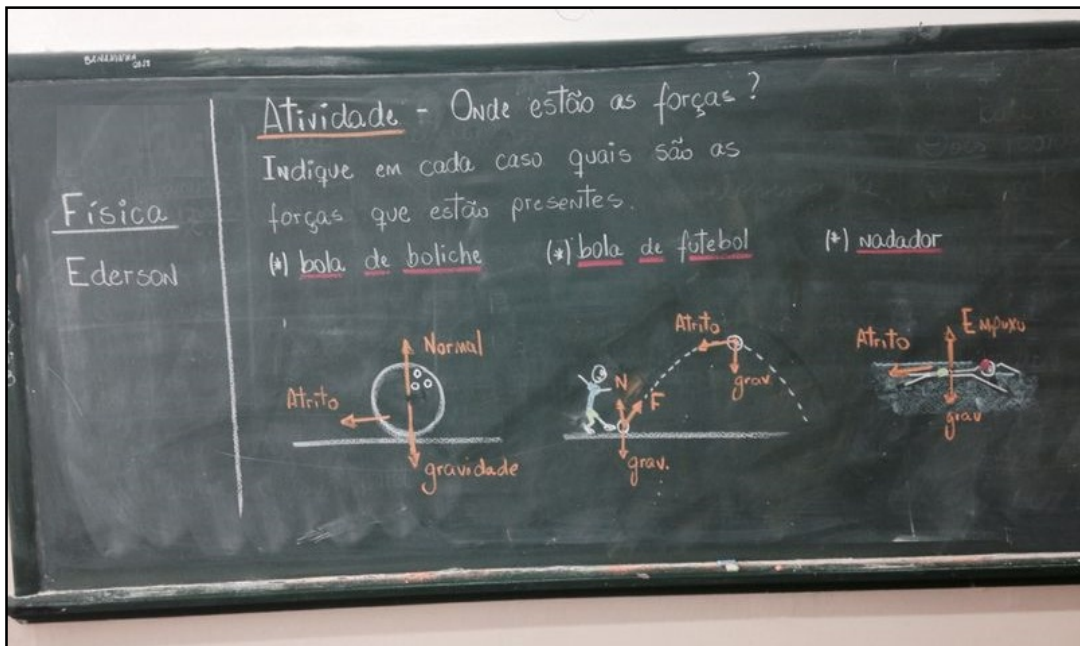 Física
Ederson
Atividade - Onde estão as forças?
Indique em cada caso quais são as
forças que estão presentes.
(*) bola de boliche
(*) bola de futebol
(*) nadador
Normal
Atrito
gravidade
Atrito
grav.
N
F
grav.
Empuxo
Atrito
grav